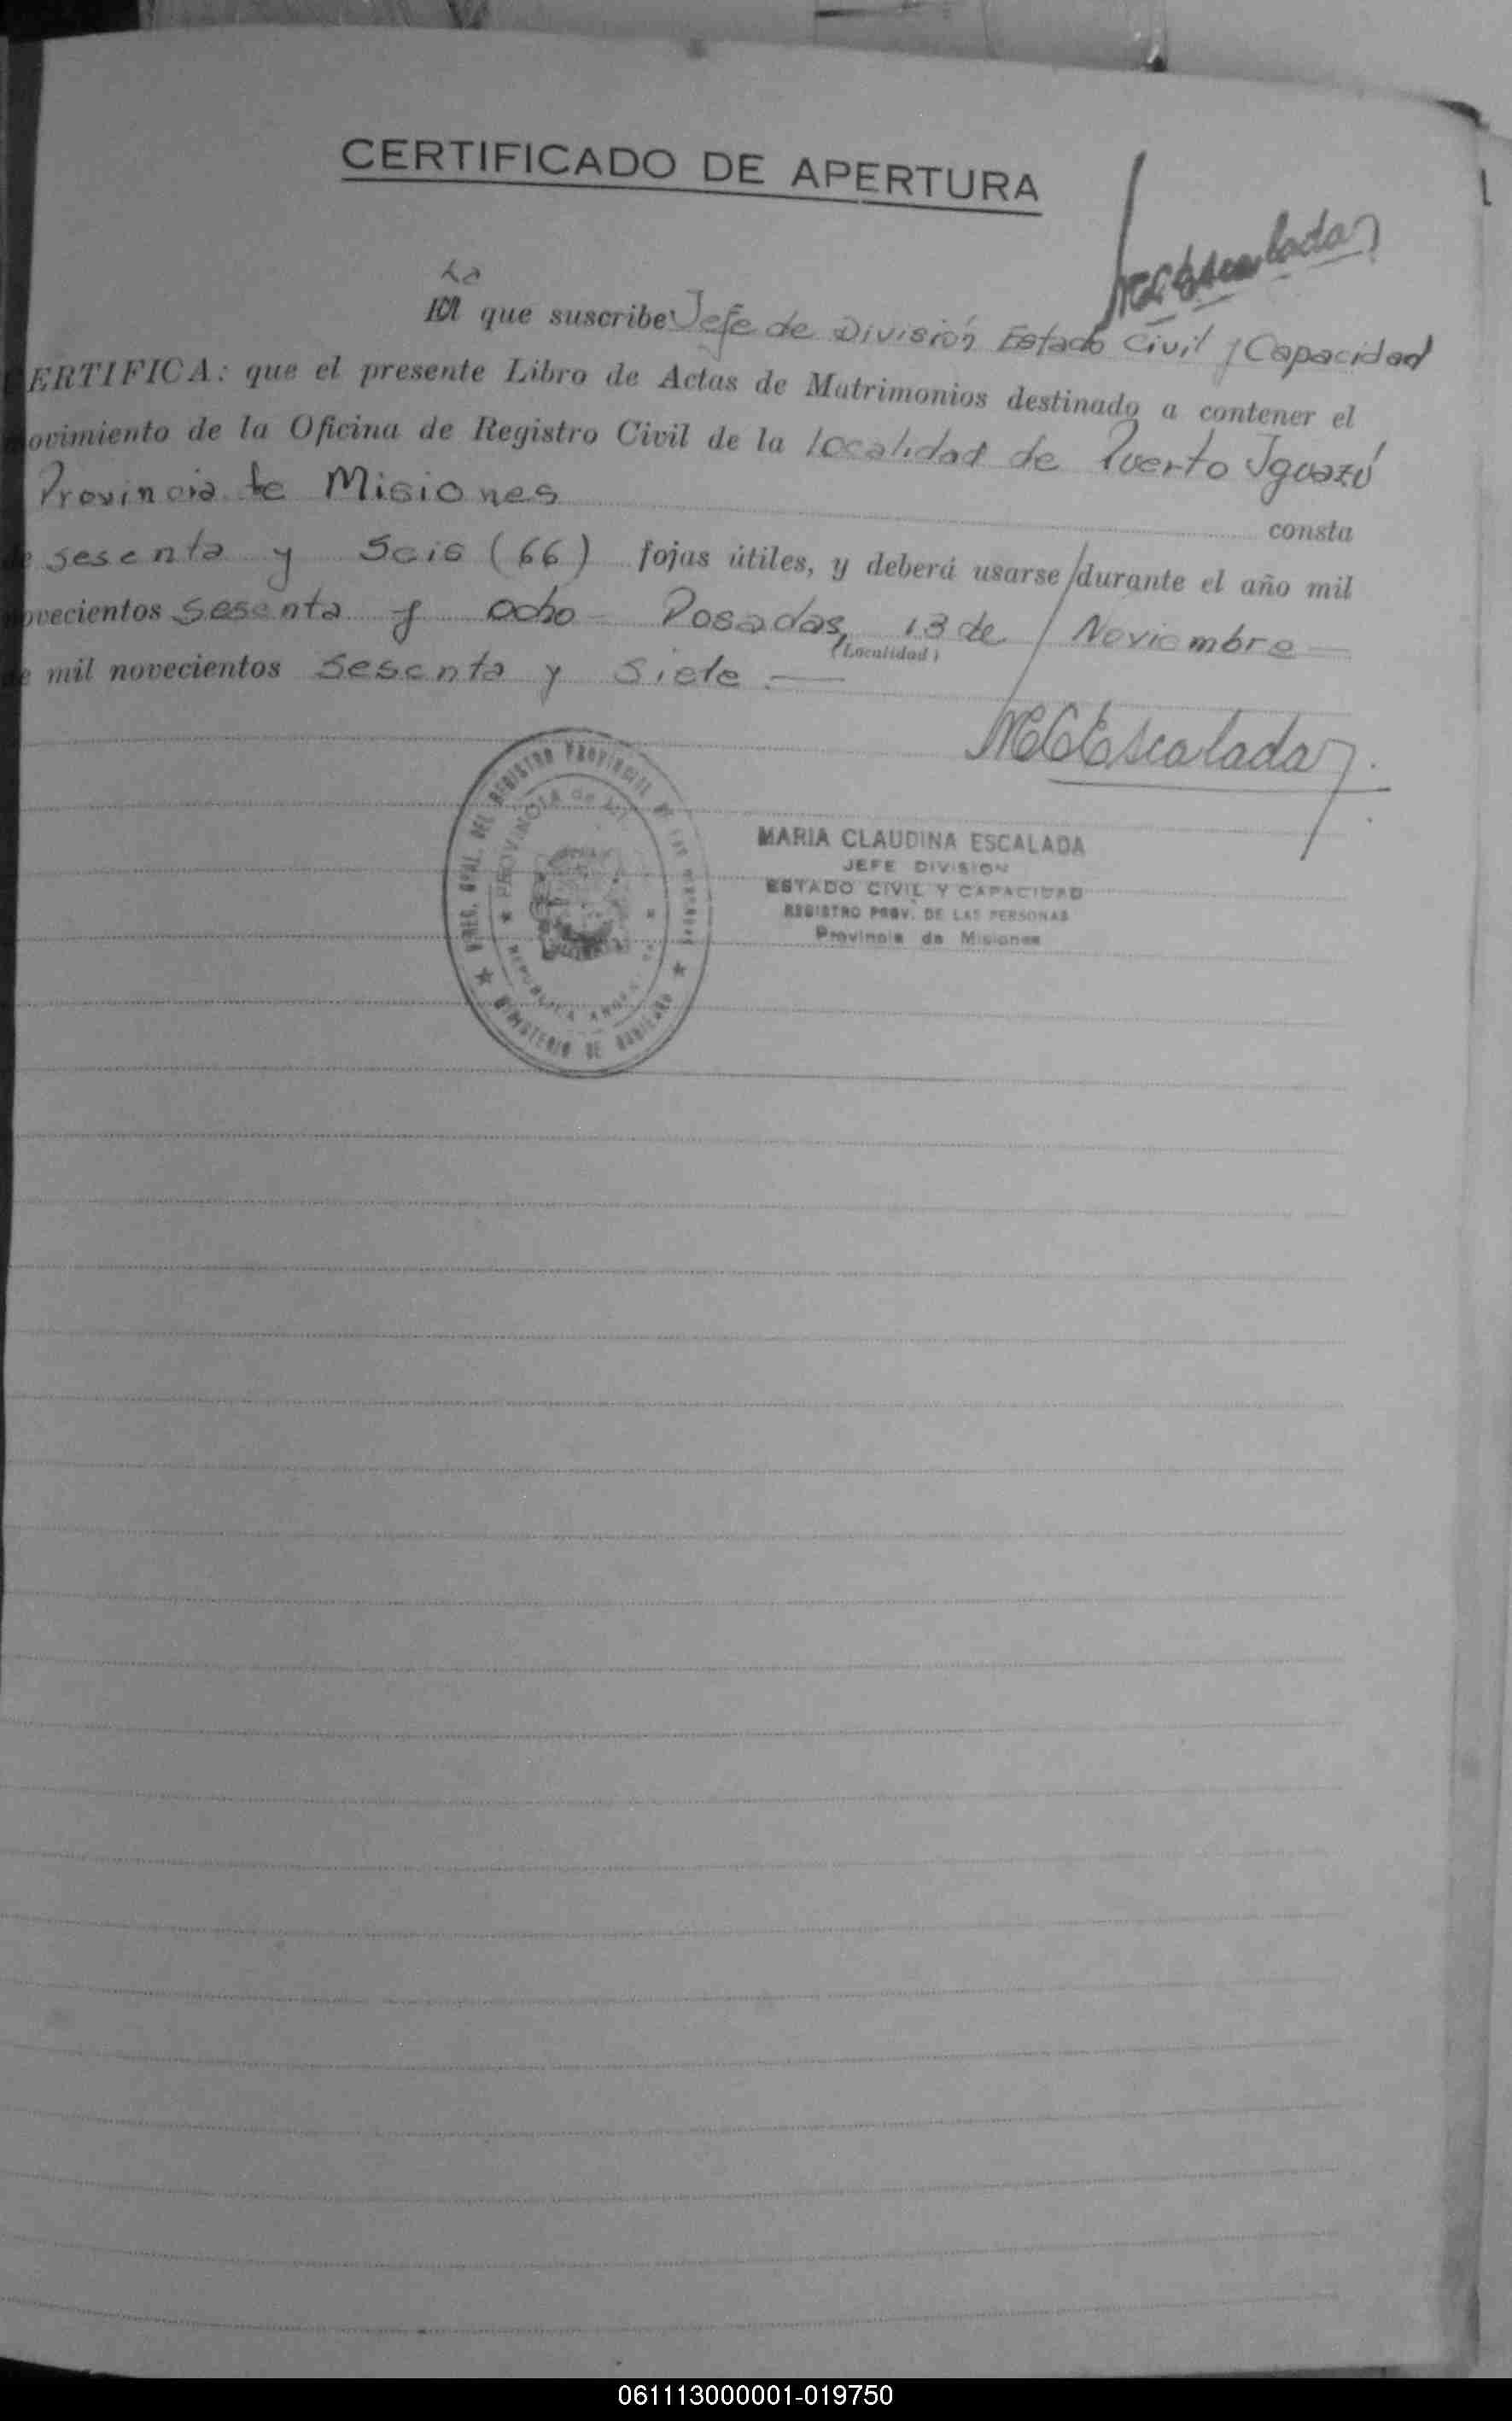 1
CERTIFICADO DE APERTURA
MCEscalada
La
El que suscribe Jefe de División Estado Civil y Capacidad
ERTIFICA: que el presente Libro de Actas de Matrimonios destinado a contener el
ovimiento de la Oficina de Registro Civil de la Localidad de Puerto Iguazú
Provincia de Misiones consta
de sesenta y Seis (66) fojas útiles, y deberá usarse durante el año mil
ovecientos Sesenta y ocho Posadas, 13 de Noviembre
(Localidad)
e mil novecientos Sesenta y Siete.
MCEscalada
DIREC. GRAL. DEL REGISTRO PROVINCIAL DE LAS PERSONAS
PROVINCIA de
REPUBLICA
MINISTERIO DE GOBIERNO
MARIA CLAUDINA ESCALADA
JEFE DIVISION
ESTADO CIVIL Y CAPACIDAD
REGISTRO PROV. DE LAS PERSONAS
Provincia de Misiones
061113000001-019750